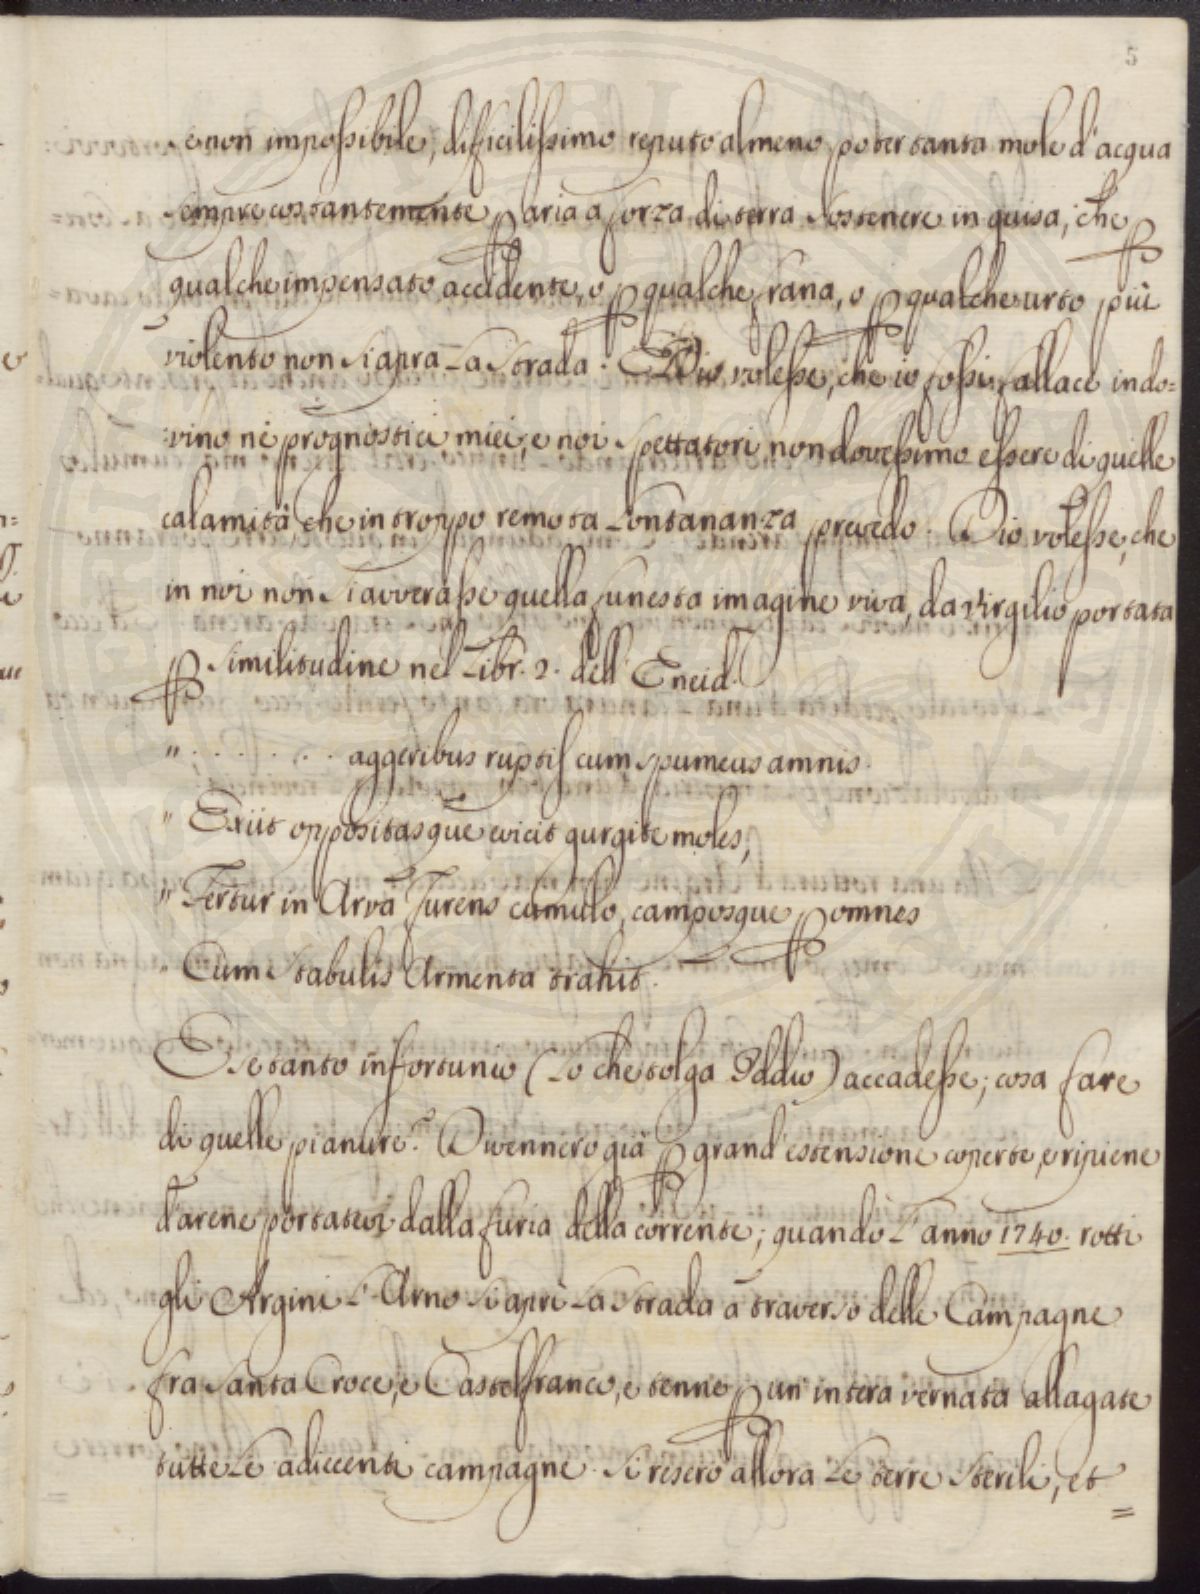 5
e non impossibile, difficilissimo reputo almeno poter tanta mole d'acqua
sempre costantemente p aria a forza di terra sostenere in guisa, che p
qualche impensato accidente, o p qualche frana, o p qualche urto più
violento non si apra la strada. Dio volesse, che io fossi fallace indo=
vino nè prognostici miei, e noi spettatori non dovessimo essere di quelle
calamità che in troppo remota lontananza prevedo. Dio volesse, che
in noi non si avverasse quella funesta imagine viva, da Virgilio portata
p similitudine nel Libr. 2. dell' Eneid.
" . . . . . . . aggeribus ruptis cum spumeus amnis
" Exiit oppositasque evicit gurgite moles,
" Fertur in Arva Furens cumulo, camposque p omnes
" Cum stabulis Armenta trahit.
E se tanto infortunio (lo che tolga Iddio) accadesse; cosa fare
di quelle pianure? Divennero già p grand' estensione coperte, e ripiene
d'arene portatevi dalla furia della corrente; quando l'anno 1740. rotti
gli Argini l'Arno si aprì la strada a traverso delle Campagne
fra Santa Croce, e Castelfranco, e tenne p un' intera vernata allagate
tutte le adiecenti campagne. Si resero allora le terre sterili, et
=